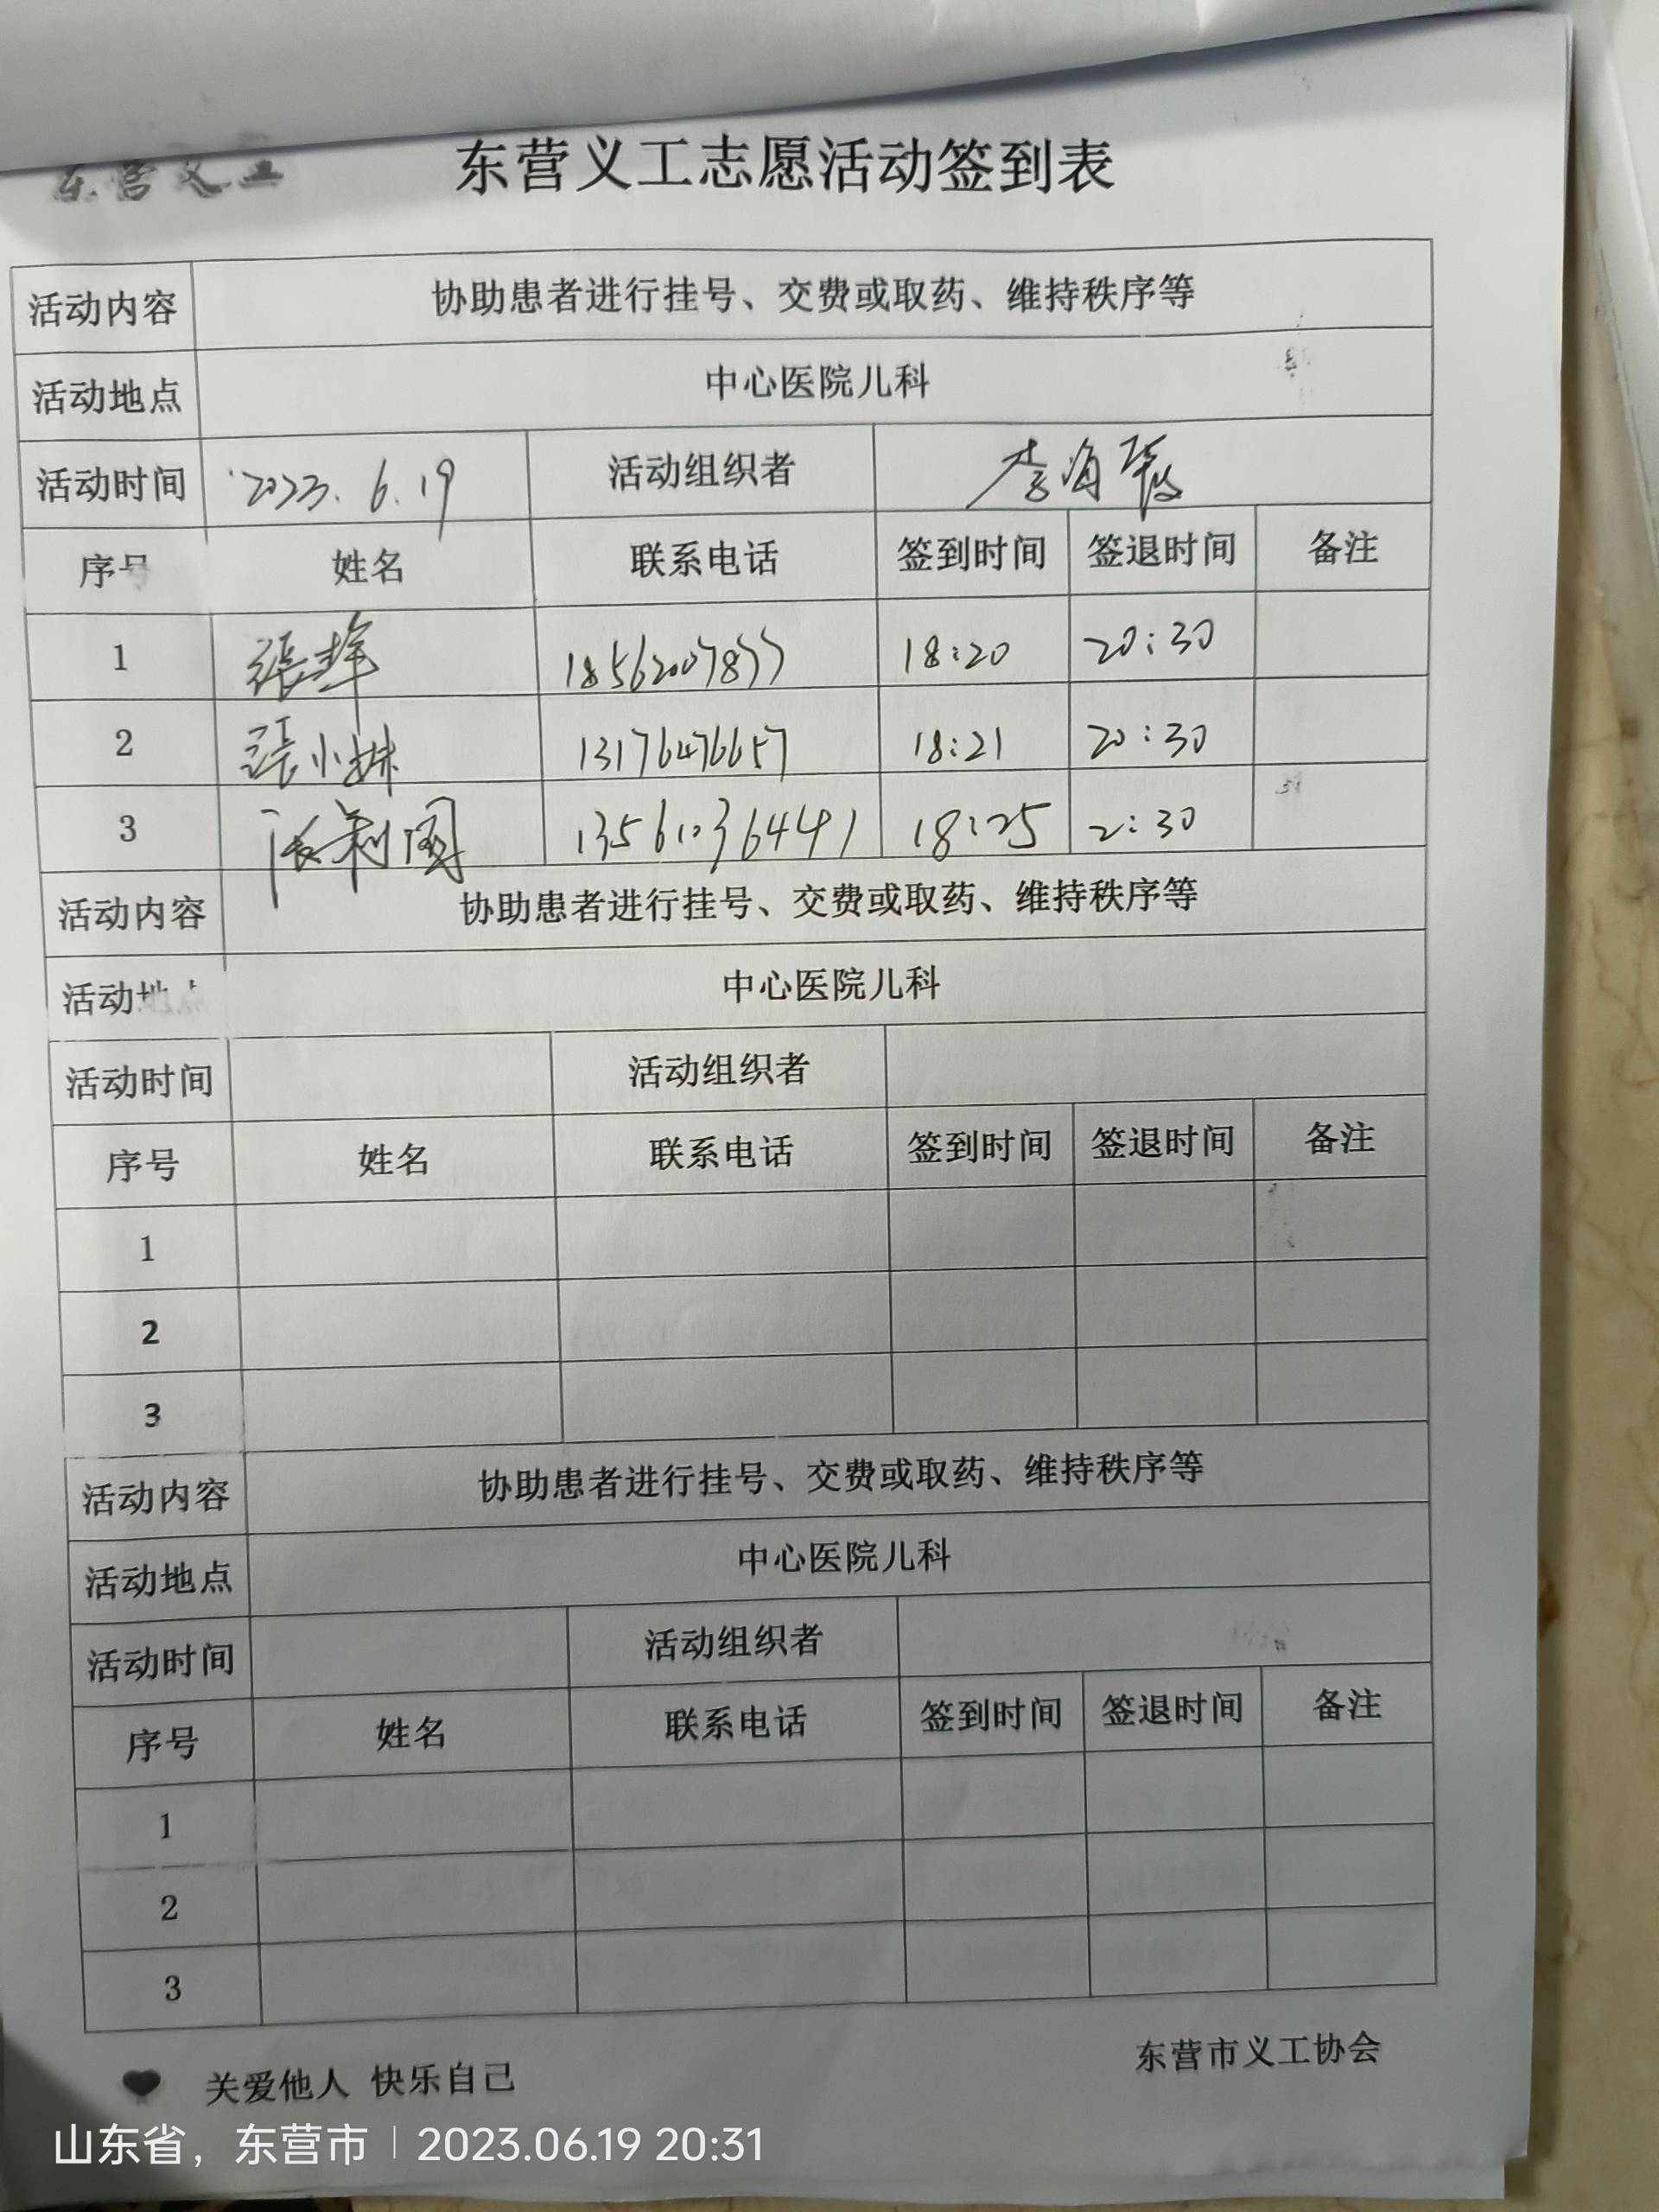 东营义工
东营义工志愿活动签到表
活动内容 协助患者进行挂号、交费或取药、维持秩序等
活动地点 中心医院儿科
活动时间 2023.6.19 活动组织者 李海霞
序号 姓名 联系电话 签到时间 签退时间 备注
1 張 18:20 20:30
2 張小妹 13176476657 18:21 20:30
3 张利国 13561036441 18:25 2:30
活动内容 协助患者进行挂号、交费或取药、维持秩序等
活动 中心医院儿科
活动时间 活动组织者
序号 姓名 联系电话 签到时间 签退时间 备注
1
2
3
活动内容 协助患者进行挂号、交费或取药、维持秩序等
活动地点 中心医院儿科
活动时间 活动组织者
序号 姓名 联系电话 签到时间 签退时间 备注
1
2
3
关爱他人 快乐自己 东营市义工协会
山东省，东营市 | 2023.06.19 20:31